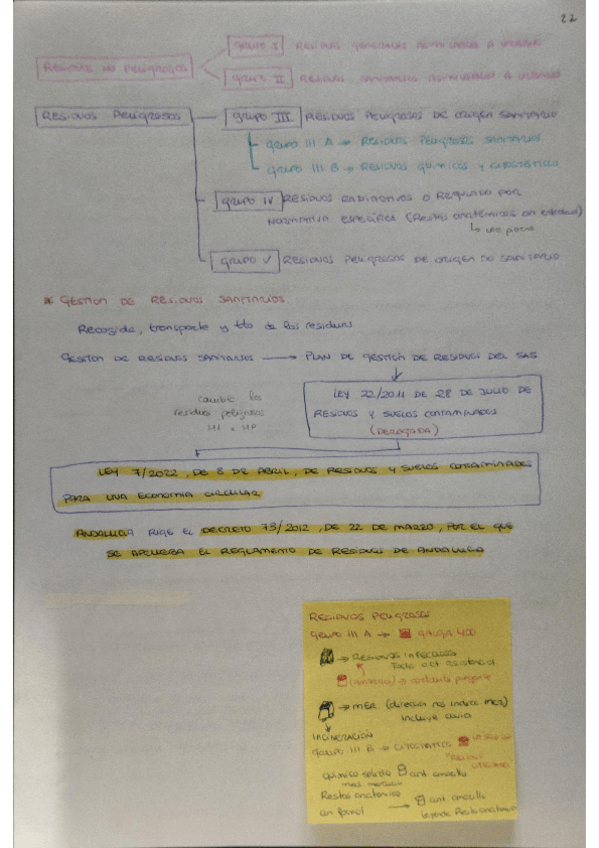 22
GRUPO I RESIDUOS GENERALES ASIMILABLES A URBANO
RESIDUOS NO PELIGROSOS
GRUPO II RESIDUOS SANITARIOS ASIMILABLES A URBANOS
RESIDUOS PELIGROSOS GRUPO III RESIDUOS PELIGROSOS DE ORIGEN SANITARIO
GRUPO III A → RESIDUOS PELIGROSOS SANITARIOS
GRUPO III B → RESIDUOS QUÍMICOS Y CITOSTÁTICOS
GRUPO IV RESIDUOS RADIACTIVOS O REGULADO POR
NORMATIVA ESPECÍFICA (Restos anatómicos con entidad)
GRUPO V RESIDUOS PELIGROSOS DE ORIGEN NO SANITARIO
* GESTION DE RESIDUOS SANITARIOS
Recogida, transporte y tto de los residuos
GESTION DE RESIDUOS SANITARIOS → PLAN DE GESTIÓN DE RESIDUOS DEL SAS
LEY 22/2011 DE 28 DE JULIO DE
RESIDUOS Y SUELOS CONTAMINADOS
(DEROGADA)
cambia los
residuos peligrosos
H x HP
LEY 7/2022, DE 8 DE ABRIL, DE RESIDUOS Y SUELOS CONTAMINADOS
PARA UNA ECONOMIA CIRCULAR
ANDALUCIA RIGE EL DECRETO 73/2012, DE 22 DE MARZO, POR EL QUE
SE APRUEBA EL REGLAMENTO DE RESIDUOS DE ANDALUCIA
RESIDUOS PELIGROSOS
GRUPO III A → GALGA 400
→ RESIDUOS INFECCIOSOS
Toda act asistencial
→ MER (diversas nos indica MER)
incluye
INCINERACIÓN
GRUPO III B → CITOSTÁTICOS
Químico solido cont. amarillo
Restos anatómico
con formol → cont. amarillo